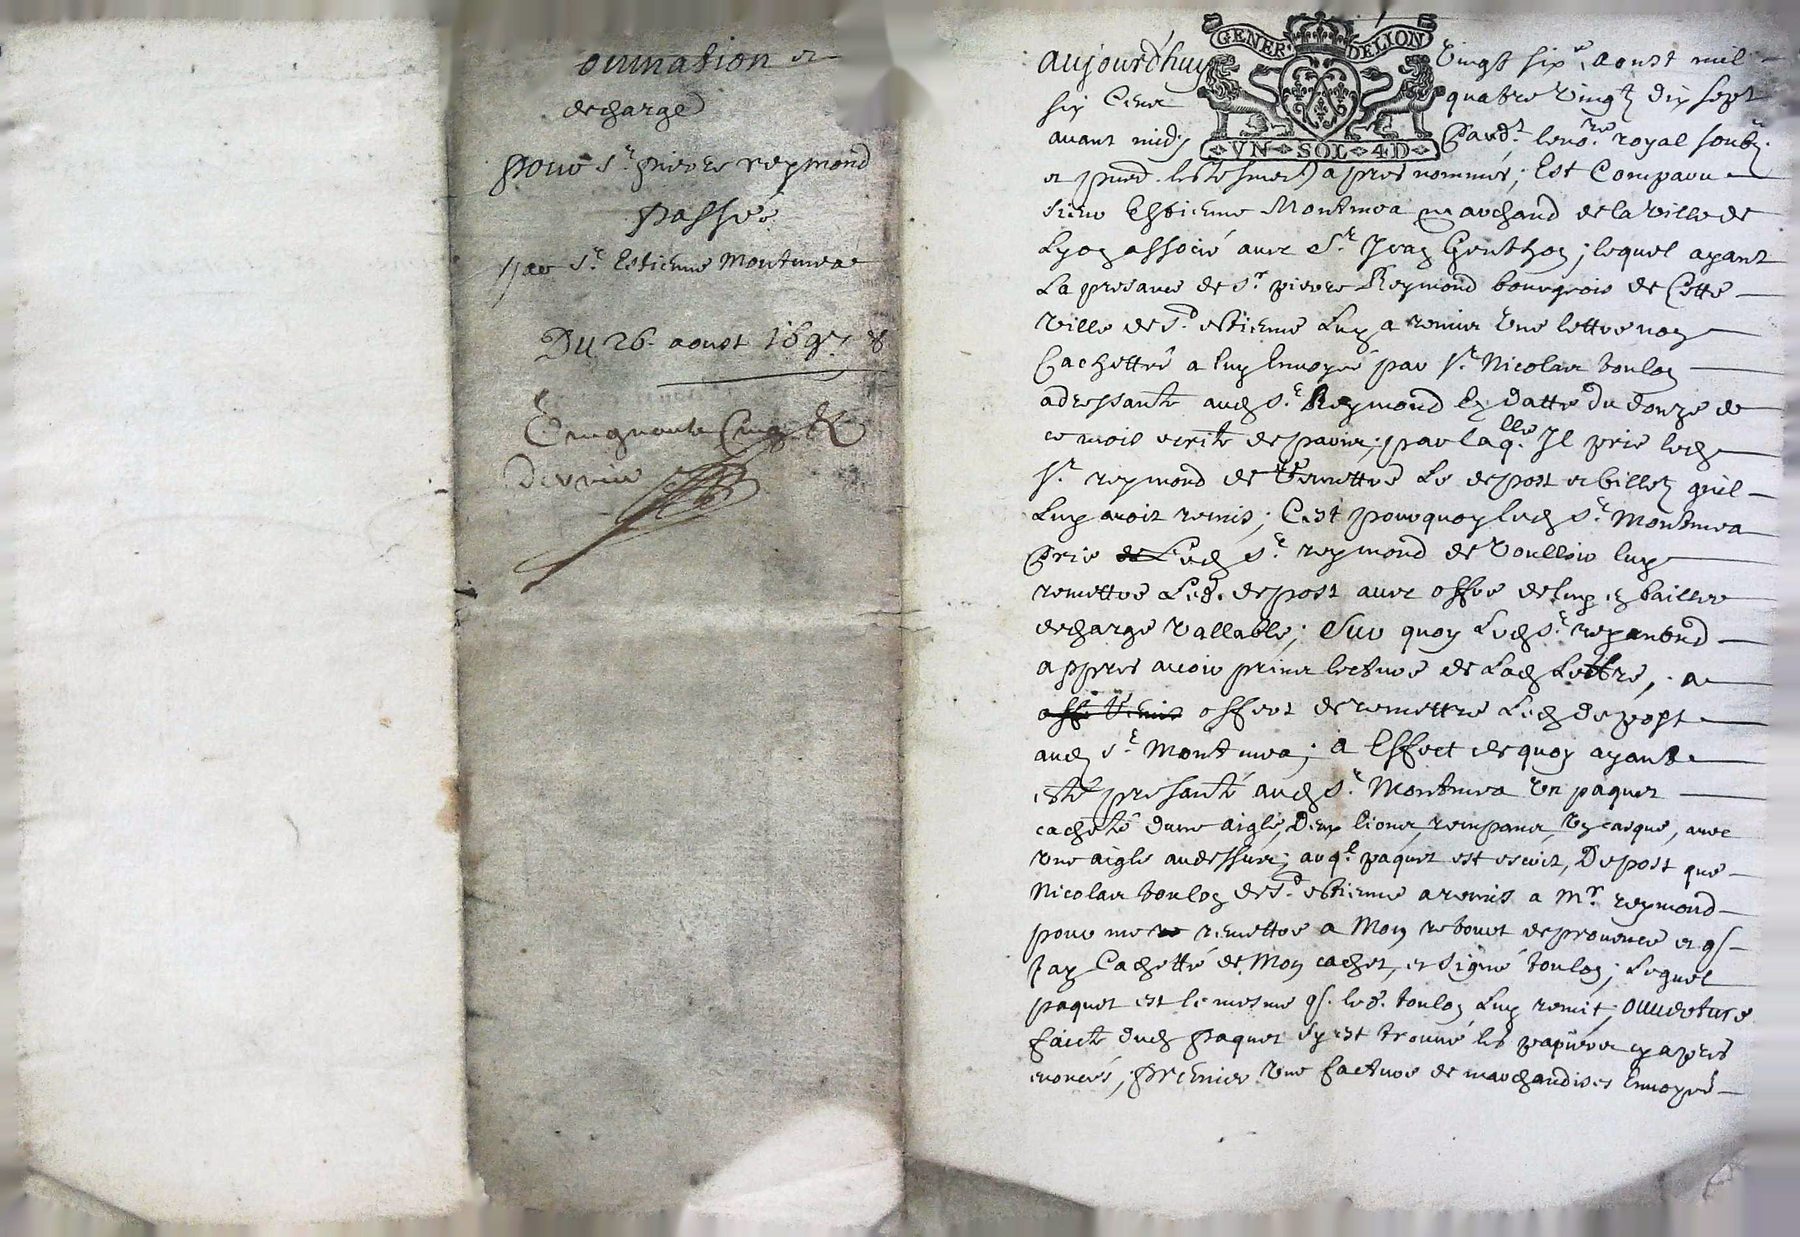 decharge
pour Sr pierre reymond
passée
par Sr Estienne Montmea
Du 26 aoust 1697
Cinquante Cinq
GENER. DELION
VN SOL 4D
aujourd'huy Vingt six aoust mil
six Cens quatre Vingtz dix sept
avant midy Pard. le no.re royal soubz.
et pnts. les tesmoins apres nommés; Est Comparu
sieur Estienne Montmea marchand de la Ville de
Lyon associé avec Sr Jean Genthon; lequel ayant
La presance de Sr pierre Reymond bourgeois de Cette
Ville de St estienne Luy a remis Une lettre non
Cachettée a luy Envoyée par Sr Nicolas toulon
adressante aud Sr Reymond En datte du donze de
ce mois escrite de paris; par laqlle Il prie led
Sr reymond de remettre Le depost et billetz quil
Luy avoit remis; C'est pourquoy led Sr Montmea
Prie Led Sr reymond de Voulloir luy
remettre Led. depost avec offre de luy en bailler
decharge Vallable; Sur quoy Led Sr reymond
appres avoir prins lecture de Lad Lettre, a
offert de remettre Led depost
aud Sr Montmea; a Effect de quoy ayant
esté presanté aud Sr Montmea Un paquet
cacheté d'une aigle, Deux lions rempans, Un casque, avec
Une aigle au dessus; auql paquet est escrit, Depost que
Nicolas toulon de St estienne a remis a Mr reymond
pour me remettre a Mon retour de provence et qs
Jay Cachetté de Mon cachet, et signé toulon; Lequel
paquet est le mesme qs led. toulon Luy remit; ouverture
faicte dud paquet sy est trouvé les papiers cy apres
enoncés; premier Une facture de marchandises Envoyée